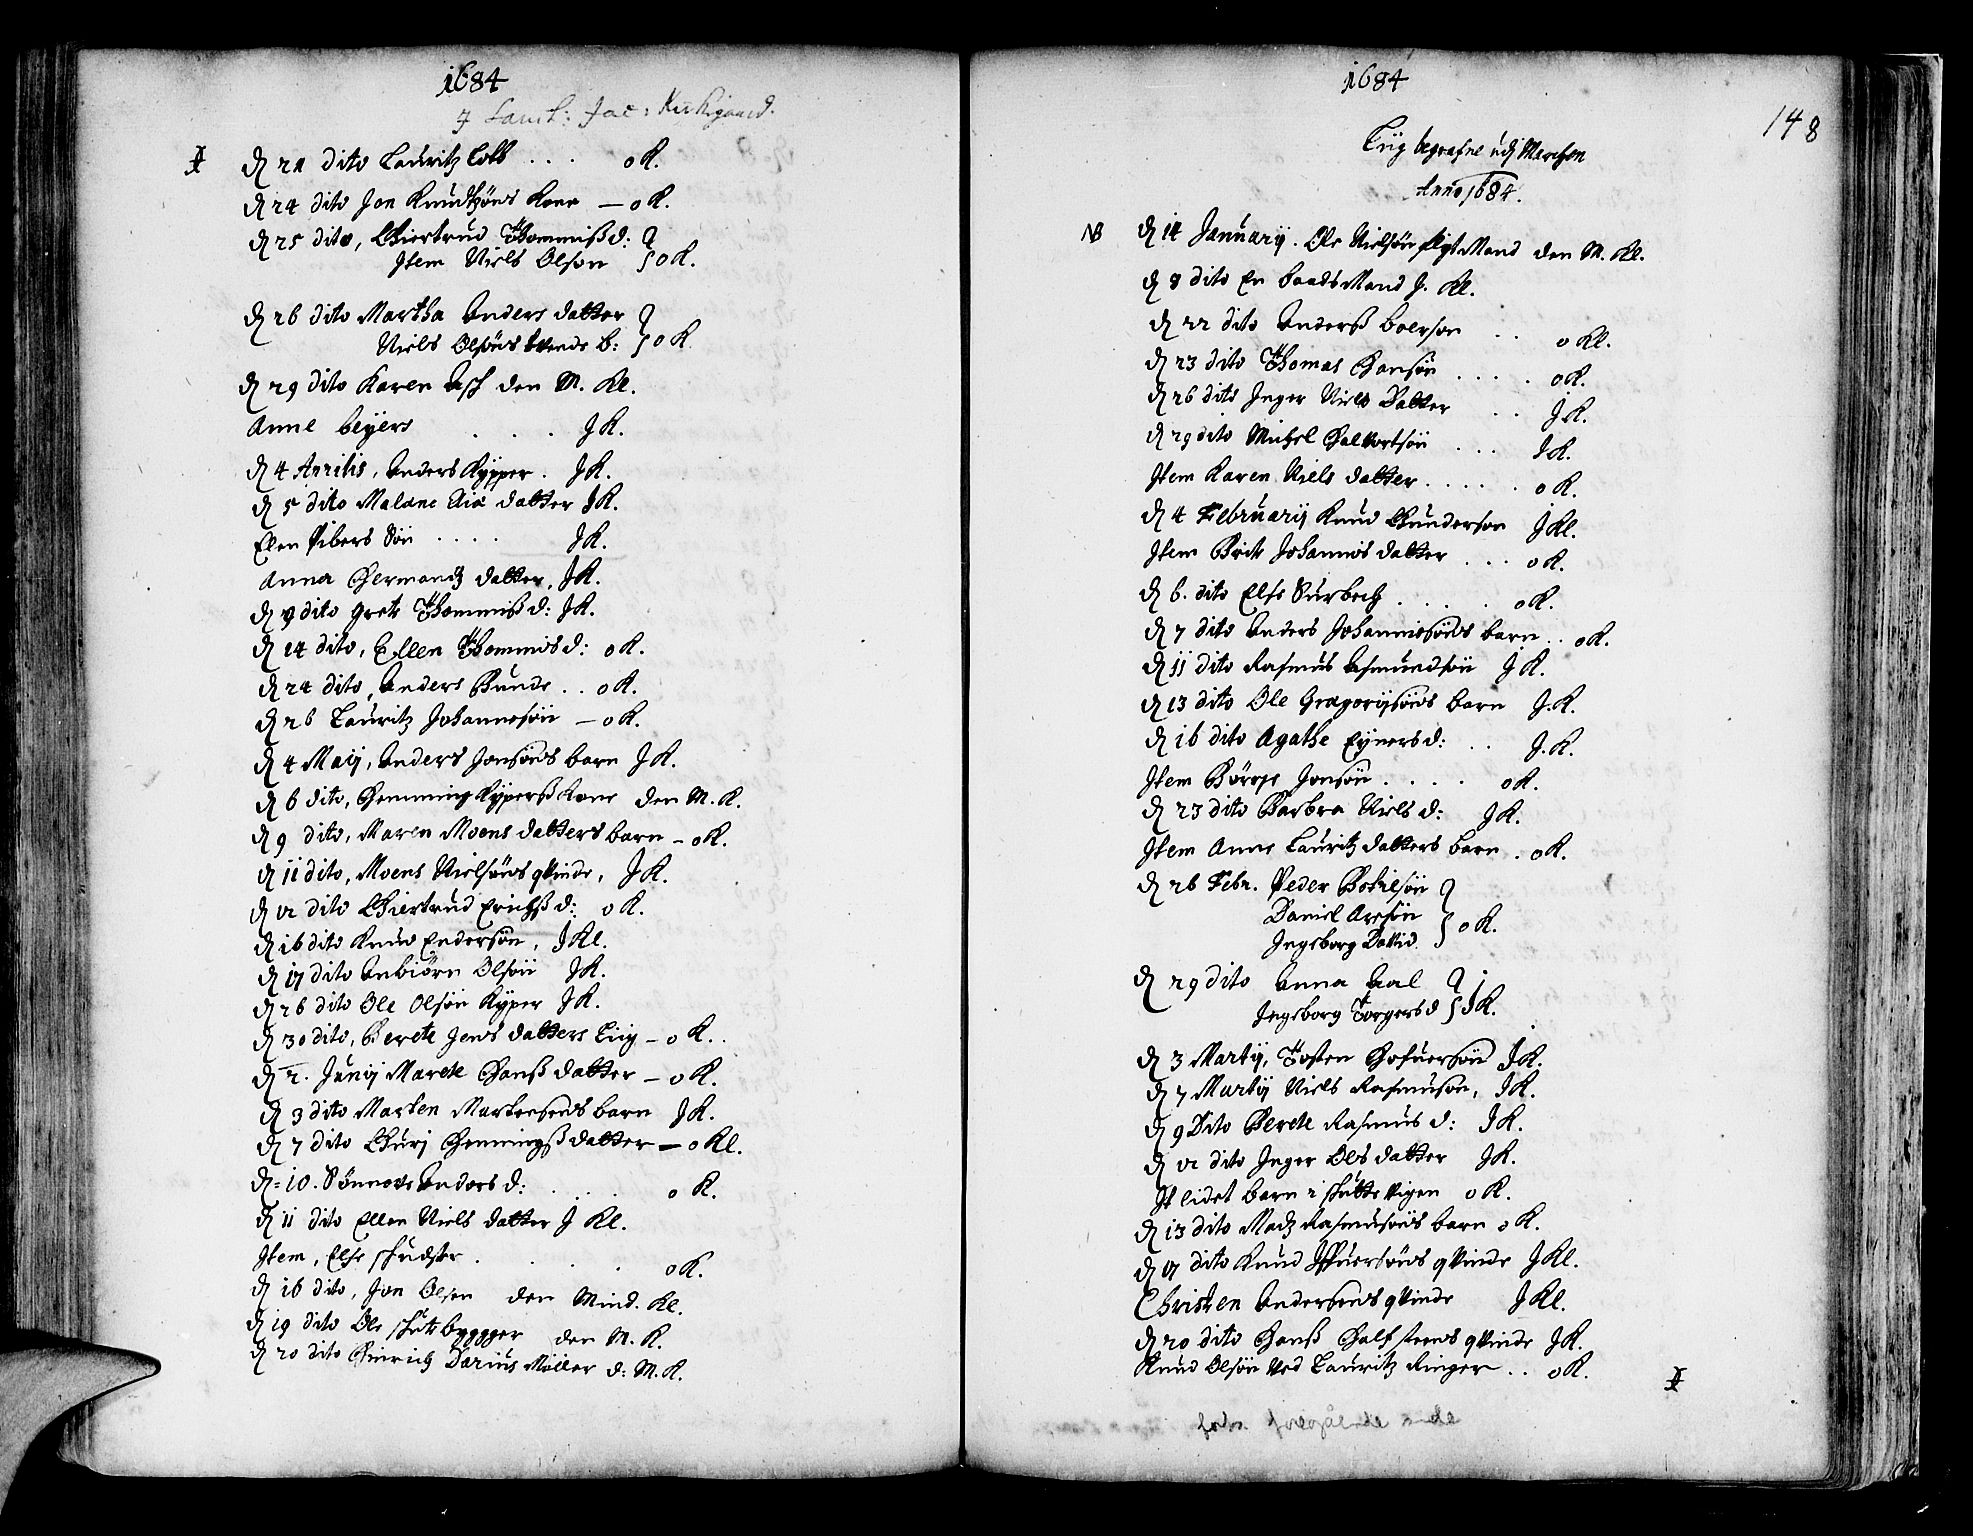 1684
J Sanct: Jac: Kirkigaard.
D 21 dito Lauritz Cobb . . . o K.
D 24 dito Jon Knudtzöns Kone – o K.
D 25 dito, Chiertrud Thommiß d:
Item Niels Olson } o K.
D 26 dito Martha Anders datter
Niels Olsöns b: } o K.
D 29 dito Karen Ash den M. Kl.
Anne beyers . . . J K.
D 4 Aprilis, Anders Kypper . J K.
D 5 dito Malene datter J K.
Elen Pibers Sön . . . . J K.
Anna Hermandz datter, J K.
D 9 dito Grete Thommiß d: J K.
D 14 dito, Ellen Thommos d: o K.
D 24 dito, Anders Bunde . . o K.
D 26 Lauritz Johannesön – o K.
D 4 Maij, Anders Jonsöns barn J K.
D 6 dito, Hemming Kyperß Kone den M. K.
D 9 dito, Maren Moens datters barn – o K.
D 11 dito, Moens Nielsöns qvinde, J K.
D 12 dito Chiertrud Erichß d: o K.
D 16 dito Knud Endersön, J Kl.
D 17 dito Anbiörn Olsön J K.
D 26 dito Ole Olsön Kyper J K.
D 30 dito, Berete Jens datters Liig – o K. .
D 2. Junij Marete Hanß datter – o K.
D 3 dito Marten Martensens barn J K.
D 7 dito Churj Hemmingß datter – o Kl.
D 10. Sönnove Anders d: . . . . o K.
D 11 dito Ellen Niels datter J Kl.
Item, Else skudster . . . . o K.
D 16 dito, Jon Olsen den Mind. Kl.
D 19 dito Ole skutebyggger den M. K.
D 20 dito Hinrich Darius Möller d: M. K.
1684
148
Liig begrafne udj Martzen
Anno 1684.
NB D 14 Januarij. Ole Nielsön Mand den M. Kl.
D 8 dito En baadsMand J. Kl.
D 22 dito Anderß boerson . . o Kl.
D 23 dito Thomas Hansön . . . . o K.
D 26 dito Inger Niels Datter . . J K.
D 29 dito Michel Halvortsön . . . J K.
Item Karen Niels datter . . . . . o K.
D 4 Februarij Knud Gunderson J Kl.
Item Brite Johannis datter . . . o K.
D 6. dito Else Surbech . . . . o K.
D 7 dito Anders Johannisöns barn . . o K.
D 11 dito Rasmus Asmundsön J K.
D 13 dito Ole Gregorijsöns barn J. K.
D 16 dito Agathe Eyners d: . . J. K.
Item Börge Jonsön . . . . o K.
D 23 dito Barbra Niels d: J K.
Item Anne Lauritz datters barn . o K.
D 26 Febr. Peder Botelsön
Daniel Aresön
Ingeborg David. } o K.
D 29 dito Anna Aal
Ingeborg Torgers d } J K.
D 3 Martij, Tosten Hofuersön J K.
D 7 Martij Niels Rasmuson, J K.
D 9 Dito Berete Rasmus d: J K.
D 12 dito Inger Ols datter J K.
It lidet barn i skuttevigen o K.
D 13 dito Madz Rasmusöns barn o K.
D 17 dito Knud Ifuersöns qvinde J Kl.
Christen Andersens qvinde J Kl.
D 20 dito Hanß Halfsteens qvinde J K.
Knud Olsön ved Lauritz Ringer . . o K.
forts. foregående side